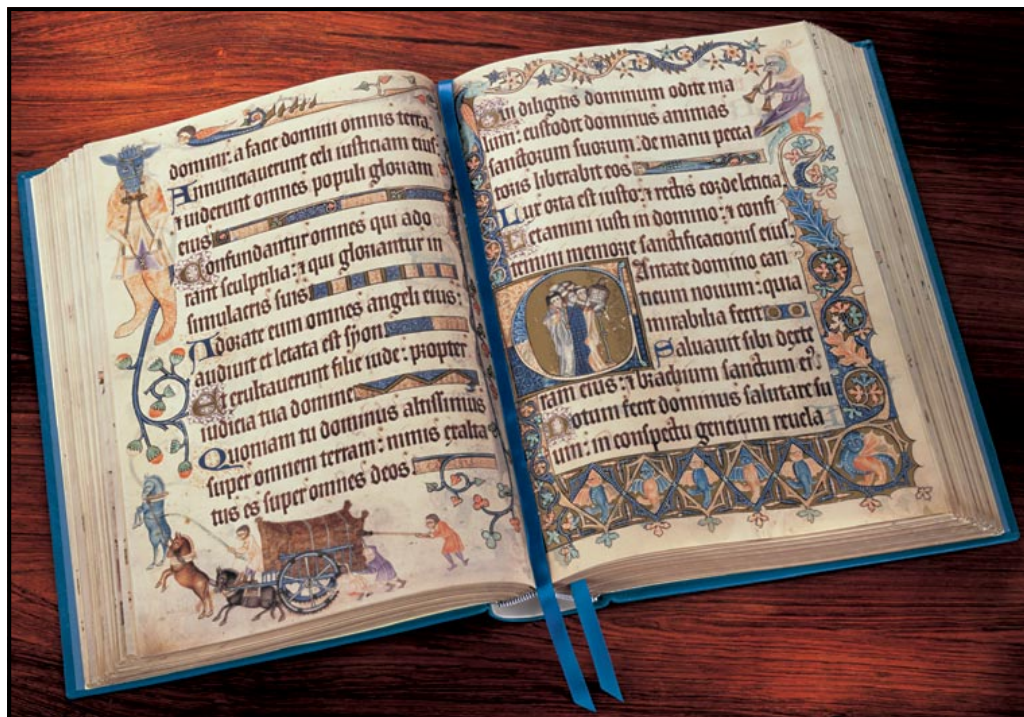 domini: a facie domini omnis terra.
Annunciauerunt celi iusticiam eius:
⁊ uiderunt omnes populi gloriam
eius
Confundantur omnes qui ado
rant sculptilia: ⁊ qui gloriantur in
simulacris suis
Adorate eum omnes angeli eius:
audiuit et letata est syon
Et exultauerunt filie iude: propter
iudicia tua domine
Quoniam tu dominus altissimus
super omnem terram: nimis exalta
tus es super omnes deos
Qui diligitis dominum odite ma
lum: custodit dominus animas
sanctorum suorum: de manu pecca
toris liberabit eos
Lux orta est iusto: ⁊ rectis corde leticia.
Letamini iusti in domino: ⁊ confi
temini memorie sanctificacionis eius.
Cantate domino can
ticum nouum: quia
mirabilia fecit
Saluauit sibi dexte
ram eius: ⁊ brachium sanctum eiꝰ
Notum fecit dominus salutare su
um: in conspectu gencium reuela